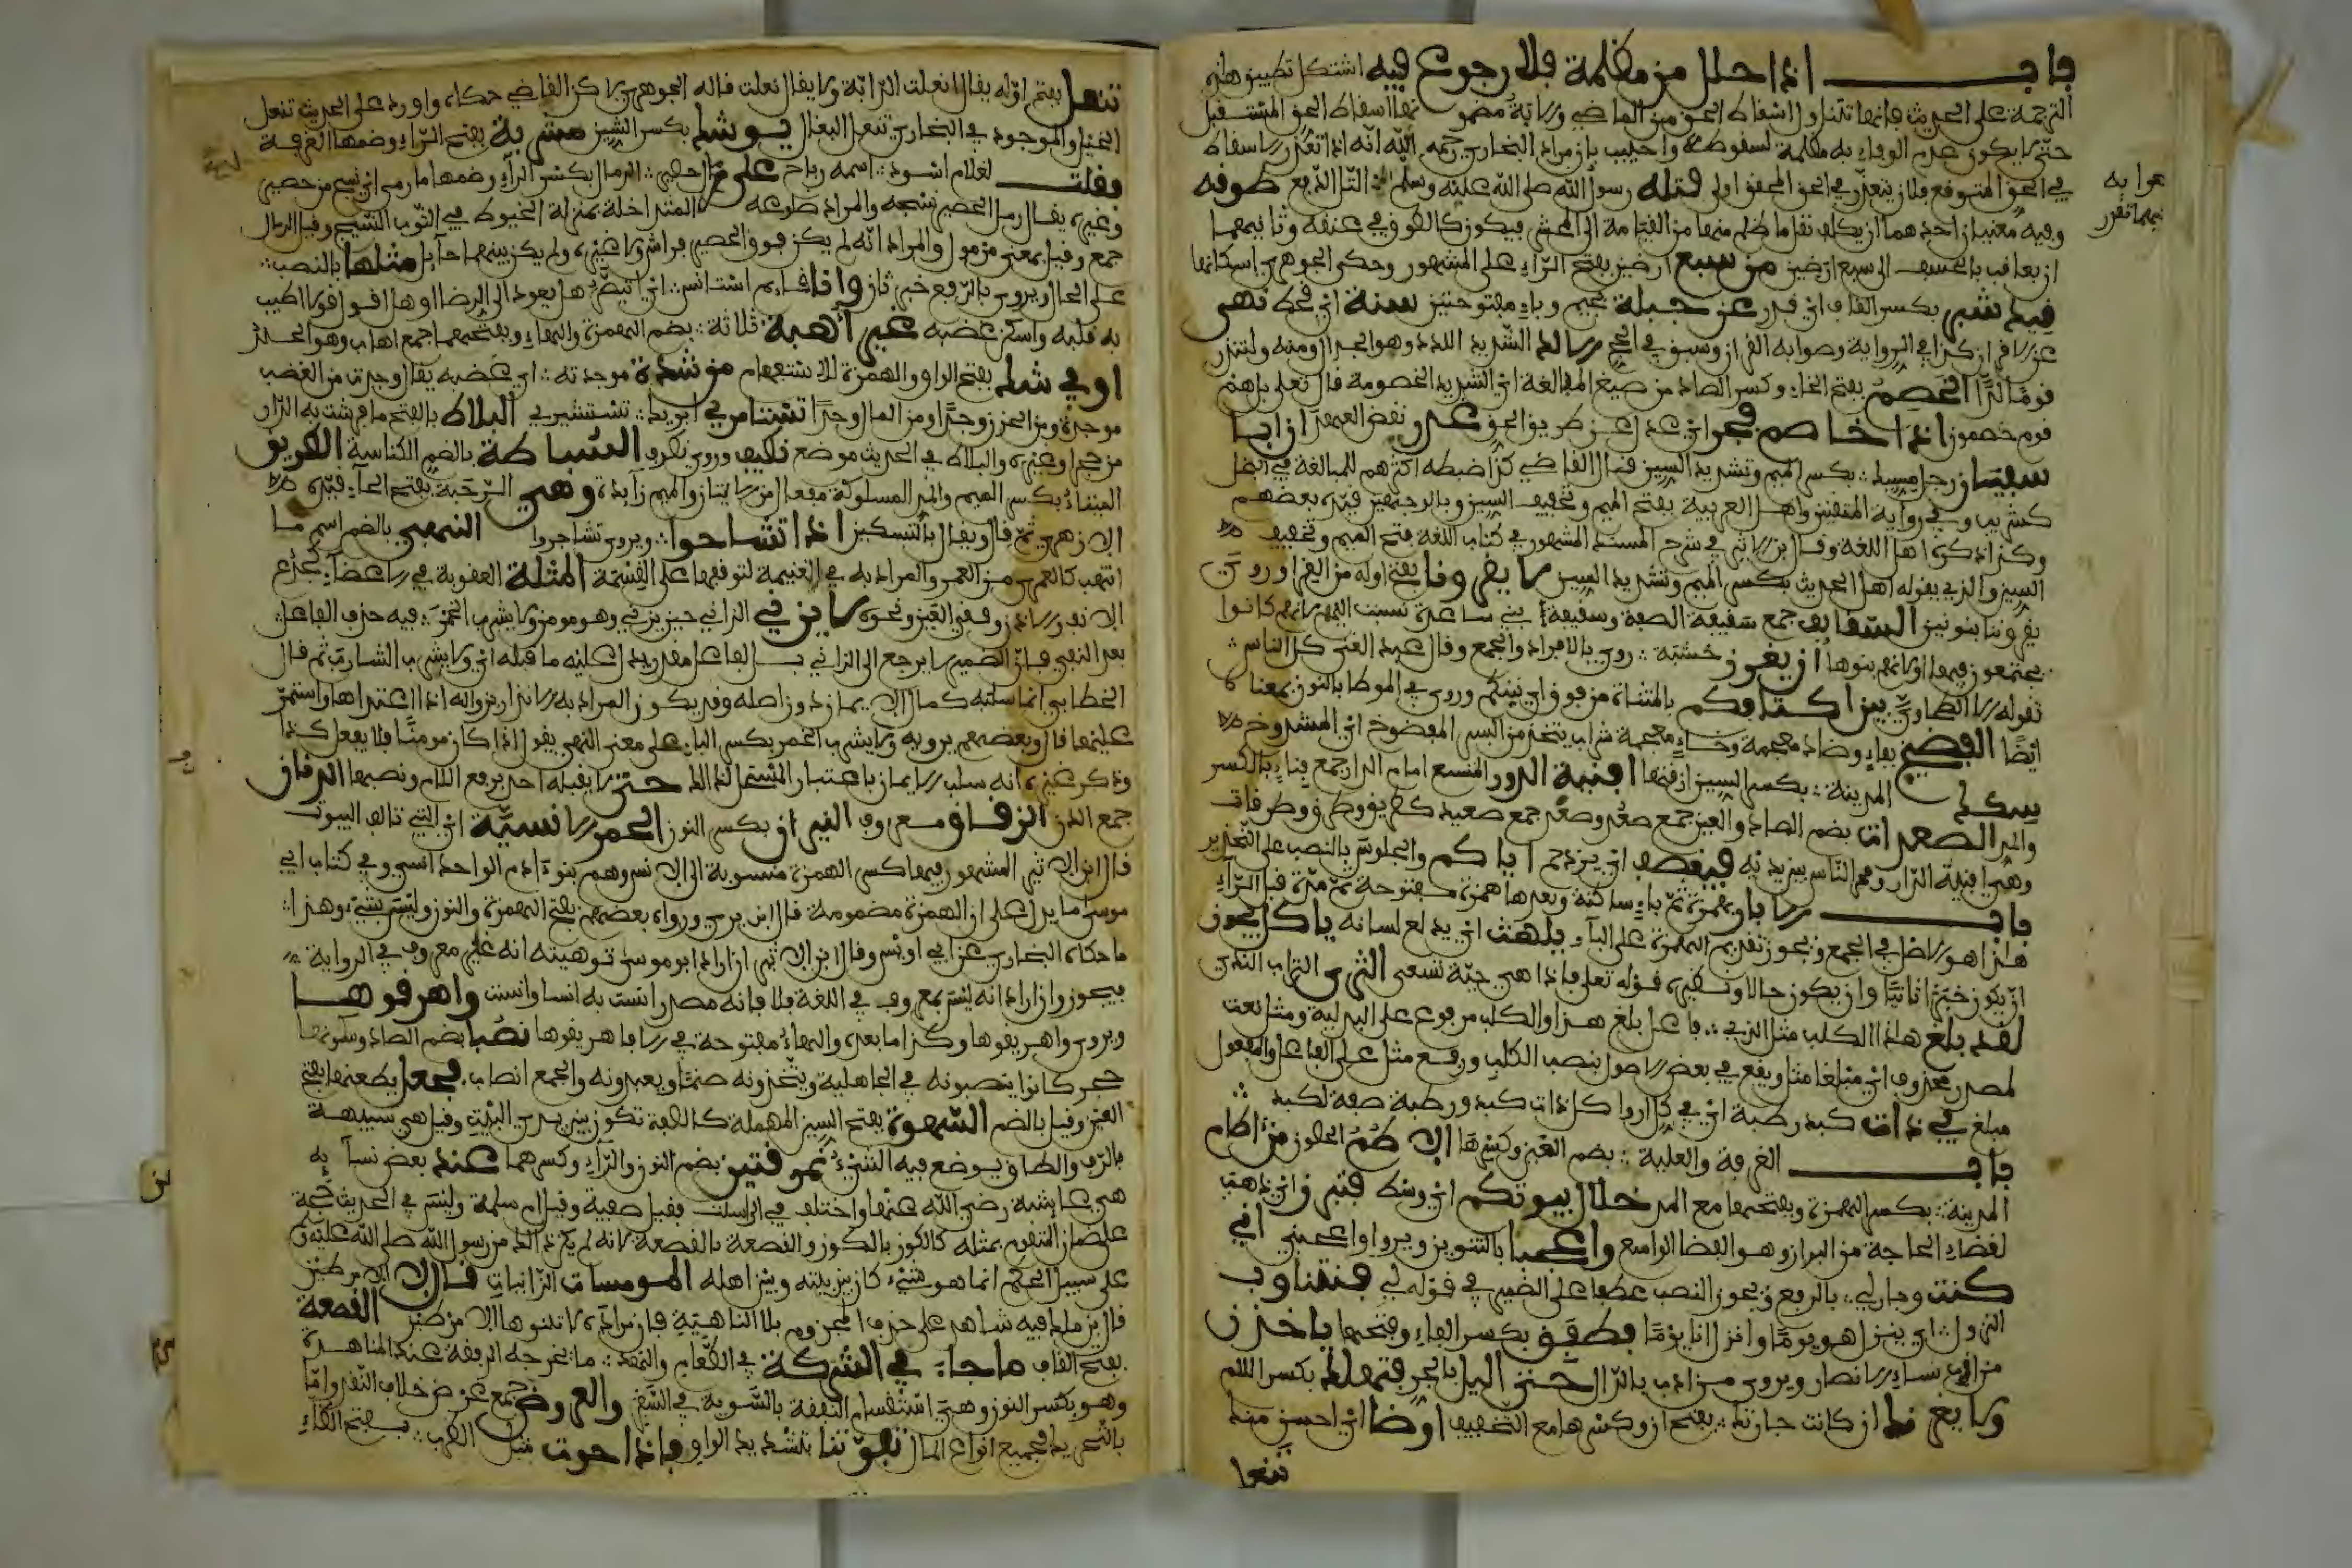 باب اذا حلل من مظلمة فلا رجوع فيه اشتكل تطبيق هذه
الترجمة على الحديث فانها تتناول اسقاط الحق من الماضي والاية مضمونها اسقاط الحق المستقبل
حتى لا يكون عدم الوفاء به مظلمة لسقوطه واجيب بان مراد البخاري رحمه الله انه اذا تعذر الاسقاط
في الحق المتوقع فلان يتعذر في الحق المحقق اولى فتله رسول الله صلى الله عليه وسلم التل الدفع طوقه
وفيه معنيان احدهما ان يكلف نقل ما ظلم منها من القيامة الى المحشر فيكون كالطوق في عنقه وثانيهما
ان يعاقب بالخسف الى سبع ارضين من سبع ارضين بفتح الراء على المشهور وحكى الجوهري اسكانها
قيد شبر بكسر القاف اي قدر عن جبلة بجيم وباء مفتوحتين سنة اي قحط نهى
عن الاقران كذا في الرواية وصوابه القران وسبق في الحج الالد الشديد اللدد وهو الجدال ومنه ولتنذر
قوما لدا الخصم بفتح الخاء وكسر الصاد من صيغ المبالغة اي الشديد الخصومة قال تعلى بل هم
قوم خصمون اذا خاصم فجر اي عدل عن طريق الحق غدر نقض العهد ان ابا
سفيان رجل مسيك بكسر الميم وتشديد السين قال القاضي كذا ضبطه اكثرهم للمبالغة في البخل
كشريب وفي رواية المتقنين واهل العربية بفتح الميم وتخفيف السين وبالوجهين قيده بعضهم
وكذا ذكره اهل اللغة وقال ابن الاثير في شرح المسند المشهور في كتاب اللغة فتح الميم وتخفيف
السين والذي يقوله اهل الحديث بكسر الميم وتشديد السين لا يقرونا بفتح اوله من القرا وروي
يقروننا بنونين السقايف جمع سقيفة الصفة وسقيفة بني ساعدة نسبت اليهم لانهم كانوا
يجتمعون فيها او لانهم بنوها ان يغرز خشبة روي بالافراد والجمع وقال عبد الغني كل الناس
تقوله الا الطحاوي بين اكتافكم بالمثناة من فوق اي بينكم وروي في الموطا بالنون بمعناه
ايضا الفضيخ بفاء وضاد معجمة وخاء معجمة شراب يتخذ من البسر المفضوخ اي المشدوخ
سكك المدينة بكسر السين ازقتها افنية الدور المتسع امام الدار جمع فناء بالكسر
والمد الصعدات بضم الصاد والعين جمع صعد وصعد جمع صعيد كطريق وطرق وطرقات
وهي فنية الدار وممر الناس بين يديه فيتقصف اي يزدحم اياكم والجلوس بالنصب على التحذير
باب الابار بهمزة ثم باء ساكنة وبعدها همزة مفتوحة ثم مدة قبل الراء
هذا هو الاصل في الجمع ويجوز تقديم الهمزة على الباء يلهث اي يدلع لسانه ياكل يجوز
ان يكون خبرا ثانيا وان يكون حالا ونظيره قوله تعلى فاذا هي حية تسعى الثرى التراب الندي
لقد بلغ هاذا الكلب مثل الذي فاعل بلغ هذا والكلب مرفوع على البدلية ومثل نعت
لمصدر محذوف اي مبلغا مثل ويقع في بعض الاصول بنصب الكلب ورفع مثل على الفاعل والمفعول
مبلغ في ذات كبد رطبة اي في كل اروا كل ذات كبد ورطبة صفة لكبد
باب الغرفة والعلية بضم العين وكسرها الاطم الحصون من ءاطام
المدينة بكسر الهمزة وبفتحها مع المد خلال بيوتكم اي وسط فتبرز اي ذهب
لقضاء الحاجة من البراز وهو الفضا الواسع واعجبا بالتنوين ويروا واعجبي اني
كنت وجار لي بالرفع ويجوز النصب عطفا على الضمير في قوله اني فنتناوب
النزول اي ينزل هو يوما وانزل انا يوما فطفق بكسر الفاء وفتحها ياخذن
من ادب نساء الانصار ويروى من ادب بالدال حتى الليل بالجر فتهلك بكسر اللام
ولا يغرنك ان كانت جارتك بفتح ان وكسرها مع التخفيف اوضا اي احسن منك
تنعل
هوابه
فيهما تقرر
تنعل بفتح اوله يقال انعلت الدابة ولا يقال نعلت قاله الجوهري لاكن القاضي حكاه واورد على الحديث تنعل
الخيل والموجود في البخاري تنعل البغال يوشك بكسر الشين مشربة بفتح الراء وضمها الغرفة
فقلت لغلام اسود اسمه رباح على رمال حصير الرمال بكسر الراء وضمها ما رمل اي نسج من حصير
وغيره يقال رمل الحصير نسجه والمراد ضلوعه المتداخلة بمنزلة الخيوط في الثوب النسيج وقيل الرمال
جمع وقيل بمعنى مرمول والمراد انه لم يكن فوق الحصير فراش ولا غيره ولم يكن بينهما حايل متكئا بالنصب
على الحال ويروى بالرفع خبر ثان وانا قايم استانس اي اتبصر هل يعود الى الرضا او هل اقول قولا اطيب
به قلبه واسكن غضبه غير اهبة ثلاثة بضم الهمزة والهاء وبفتحهما جمع اهاب وهو الجلد
اوفي شك بفتح الواو والهمزة للاستفهام من شدة موجدته اي غضبه يقال وجدت من الغضب
موجدة ومن الحزن وجدا ومن المال وجدا تستامري ابويك تستشيري البلاط بالفتح ما فرشت به الدار
من حجر او غيره والبلاط في الحديث موضع تكيف وروي تكرف السباطة بالضم الكناسة الطريق
الميتاء بكسر الميم والمد المسلوكة مفعال من الاتيان والميم زايدة وهي الرحبة بفتح الحاء قيده
الازهري ثم قال ويقال بالتسكين اذا تشاحوا ويروى تشاجروا النهبى بالضم اسم ما
انتهب كالعمرى من العمر والمراد به في الغنيمة لتوقفها على القسمة المثلة العقوبة في الاعضاء كجدع
الانف والاذن وفقئ العين ونحوه لا يزني الزاني حين يزني وهو مومن ولا يشرب الخمر فيه حذف الفاعل
بعد النفي فان الضمير لا يرجع الى الزاني بل الفاعل مقدر يدل عليه ما قبله اي ولا يشرب الشارب ثم قال
الخطابي انما سلبه كمال الايمان دون اصله وقد يكون المراد به الانذار بزواله اذا اعتادها واستمر
عليها قال وبعضهم يرويه ولا يشرب الخمر بكسر الباء على معنى النهي يقول اذا كان مومنا فلا يفعل كذا
وذكر غيره انه سلب الايمان باعتبار المستحل لذالك حتى لا يقبله احد برفع اللام ونصبها الدنان
جمع الدن الزقاق معروف النيران بكسر النون الحمر الانسية اي التي تالف البيوت
قال ابن الاثير المشهور فيها كسر الهمزة منسوبة الى الانس وهم بنو ءادم الواحد انسي وفي كتاب ابي
موسى ما يدل على ان الهمزة مضمومة قال ابن بري ورواه بعضهم بفتح الهمزة والنون وليس بشيء وهذا
ما حكاه البخاري عن ابي اويس وقال ابن الاثير ان اراد ابو موسى توهينه انه غير معروف في الرواية
فيجوز وان اراد انه ليس بمعروف في اللغة فلا فانه مصدر انست به انسا وانست واهرقوها
ويروى واهريقوها وكذا ما بعده والهاء مفتوحة في الا فاهريقوها نصبا بضم الصاد وسكونها
حجر كانوا ينصبونه في الجاهلية ويتخذونه صنما ويعبدونه والجمع انصاب فجعل يطعنها بفتح
العين وقيل بالضم السهوة بفتح السين المهملة كالكوة تكون بين يدي البيت وقيل هي شبيهة
بالرف والطاق يوضع فيه الشيء نمرقتين بضم النون والراء وكسرهما عند بعض نسايه
هي عايشة رضي الله عنها واختلف في المرسلة فقيل صفية وقيل ام سلمة وليس في الحديث حجة
على ضمان المتقوم بمثله كالكوز بالكوز والقصعة بالقصعة لانه لم يكن ذالك من رسول الله صلى الله عليه وسلم
على سبيل الحكم انما هو شيء كان بين بيته وبين اهله المومسات الزانيات قال لا الا من طين
قال ابن ملك فيه شاهد على حذف المجزوم بلا الناهية فان مراده لا تبنوها الا من طين القصعة
بفتح القاف ما جاء في الشركة في الطعام والنهد ما تخرجه الرفقة عند المناهدة
وهو بكسر النون وهي استقسام النفقة بالسوية في السفر والعروض جمع عرض خلاف النقد واما
بالتحريك فجميع انواع المال نقوتنا بتشديد الواو فاذا حوت مثل الظرب بفتح الظاء